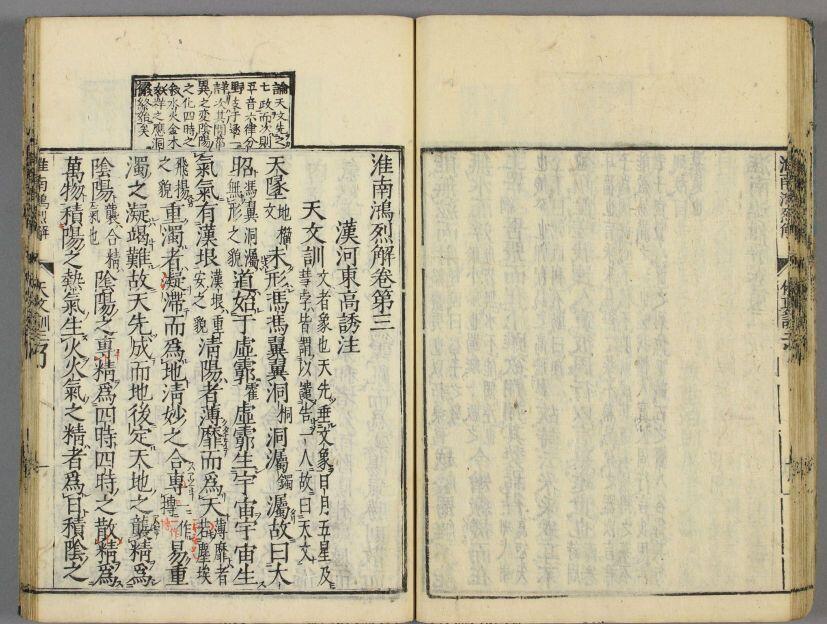 淮南鴻烈解卷第三
漢河東高誘注
天文訓 文者象也天先垂文象日月五星及彗孛皆謂以譴告一人故曰天文
天墬 地 籀文 未形馮馮翼翼洞 桐 洞灟 鐲 灟故曰太
昭 馮翼洞灟無形之貌 道始于虛霩 霍 虛霩生宇宙宇宙生
氣氣有漢垠 漢垠重安之貌 清陽者薄靡而爲天 薄靡者若塵埃
飛揚之貌 重濁者凝滯而爲地清妙之合專 一作摶 易重
濁之凝竭難故天先成而地後定天地之襲精爲
陰陽 襲合精氣也 陰陽之專精爲四時四時之散精爲
萬物積陽之熱氣生火火氣之精者爲日積陰之
論天文先之
七政而次則
平音六律分
野支子遞一
異之變陰陽
之化四時之
敘水火金木
淮南鴻烈解
天文訓
淮南鴻烈解